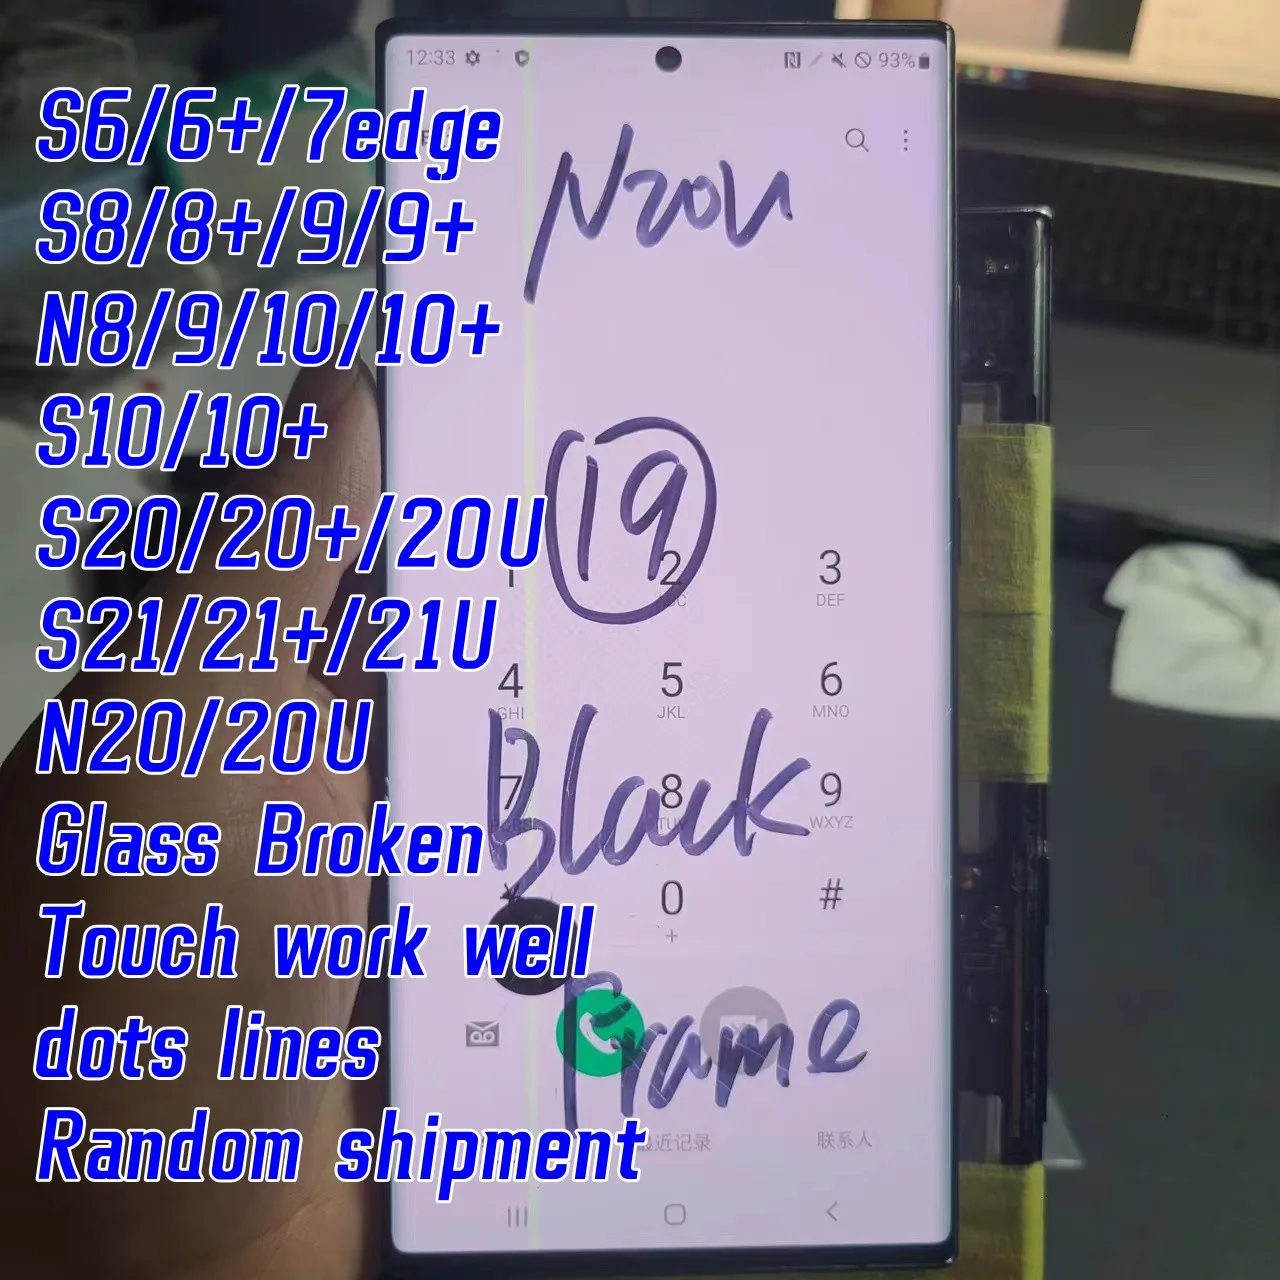 12:33
93%
S6/6+/7edge
S8/8+/9/9+
N8/9/10/10+
S10/10+
S20/20+/20U
S21/21+/21U
N20/20U
Glass Broken
Touch work well
dots lines
Random shipment
N20U
19
Black
Frame
1 2 3
DEF
4 5 6
GHI JKL MNO
7 8 9
TUV WXYZ
0 #
+
最近记录 联系人